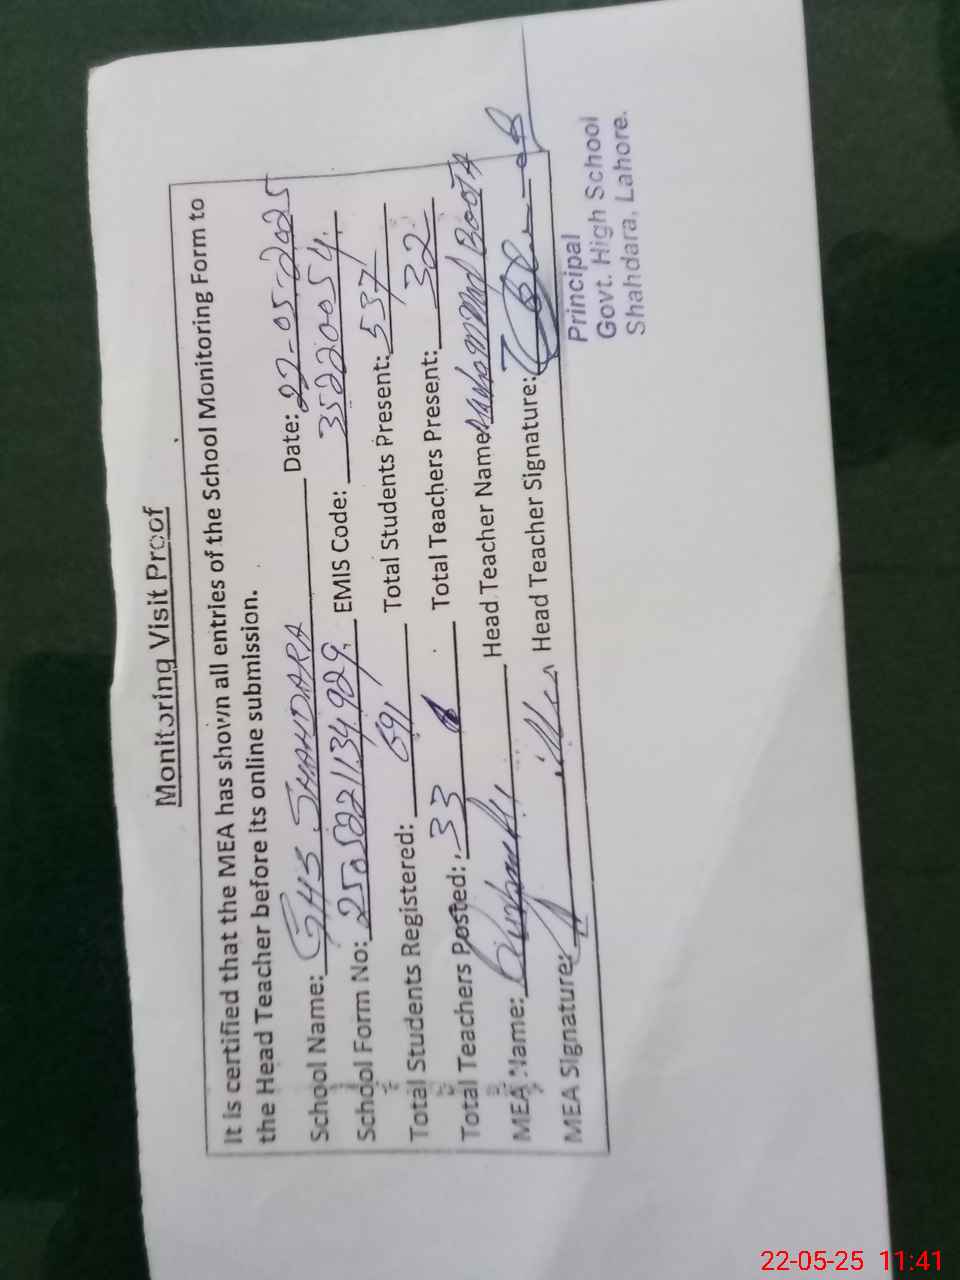 Monitoring Visit Proof
It is certified that the MEA has shown all entries of the School Monitoring Form to
the Head Teacher before its online submission.
School Name: GHS SHAHDARA Date: 22-05-2025
School Form No: 2505221134929. EMIS Code: 35220054.
Total Students Registered: 691 Total Students Present: 537
Total Teachers Posted: 33 Total Teachers Present: 32
MEA Name: Head Teacher Name: Muhammad BOOTA
MEA Signature: Head Teacher Signature:
Principal
Govt. High School
Shahdara, Lahore.
22-05-25 11:41